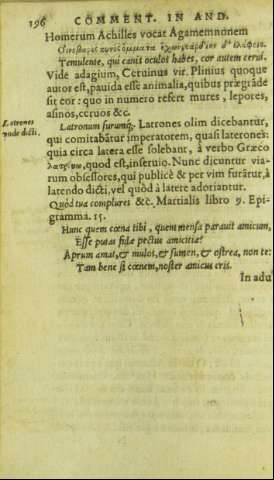 196 COMMENT. IN AND.
Homerum Achilles vocat Agamemnonem
Οἰνοβαρὲς κυνὸς ὄμματα ἔχων κραδίην δ' ἐλάφοιο.
Temulente, qui canis oculos habes, cor autem cerui.
Vide adagium, Ceruinus vir. Plinius quoque
autor est, pauida esse animalia, quibus prægrāde
sit cor: quo in numero refert mures, lepores,
asinos, ceruos &c.
Latrones
vnde dicti.
Latronum furumq́;. Latrones olim dicebantur,
qui comitabātur imperatorem, quasi laterones:
quia circa latera esse solebant, à verbo Græco
λατρεύω, quod est, inseruio. Nunc dicuntur via-
rum obsessores, qui publicè & per vim furātur, à
latendo dicti, vel quòd à latere adoriantur.
Quòd tua complures &c. Martialis libro 9. Epi-
gramma. 15.
Hunc quem cœna tibi, quem mensa parauit amicum,
Esse putas fidæ pectus amicitiæ?
Aprum amat, & mulos, & sumen, & ostrea, non te:
Tam bene si cœnem, noster amicus eris.
In adu